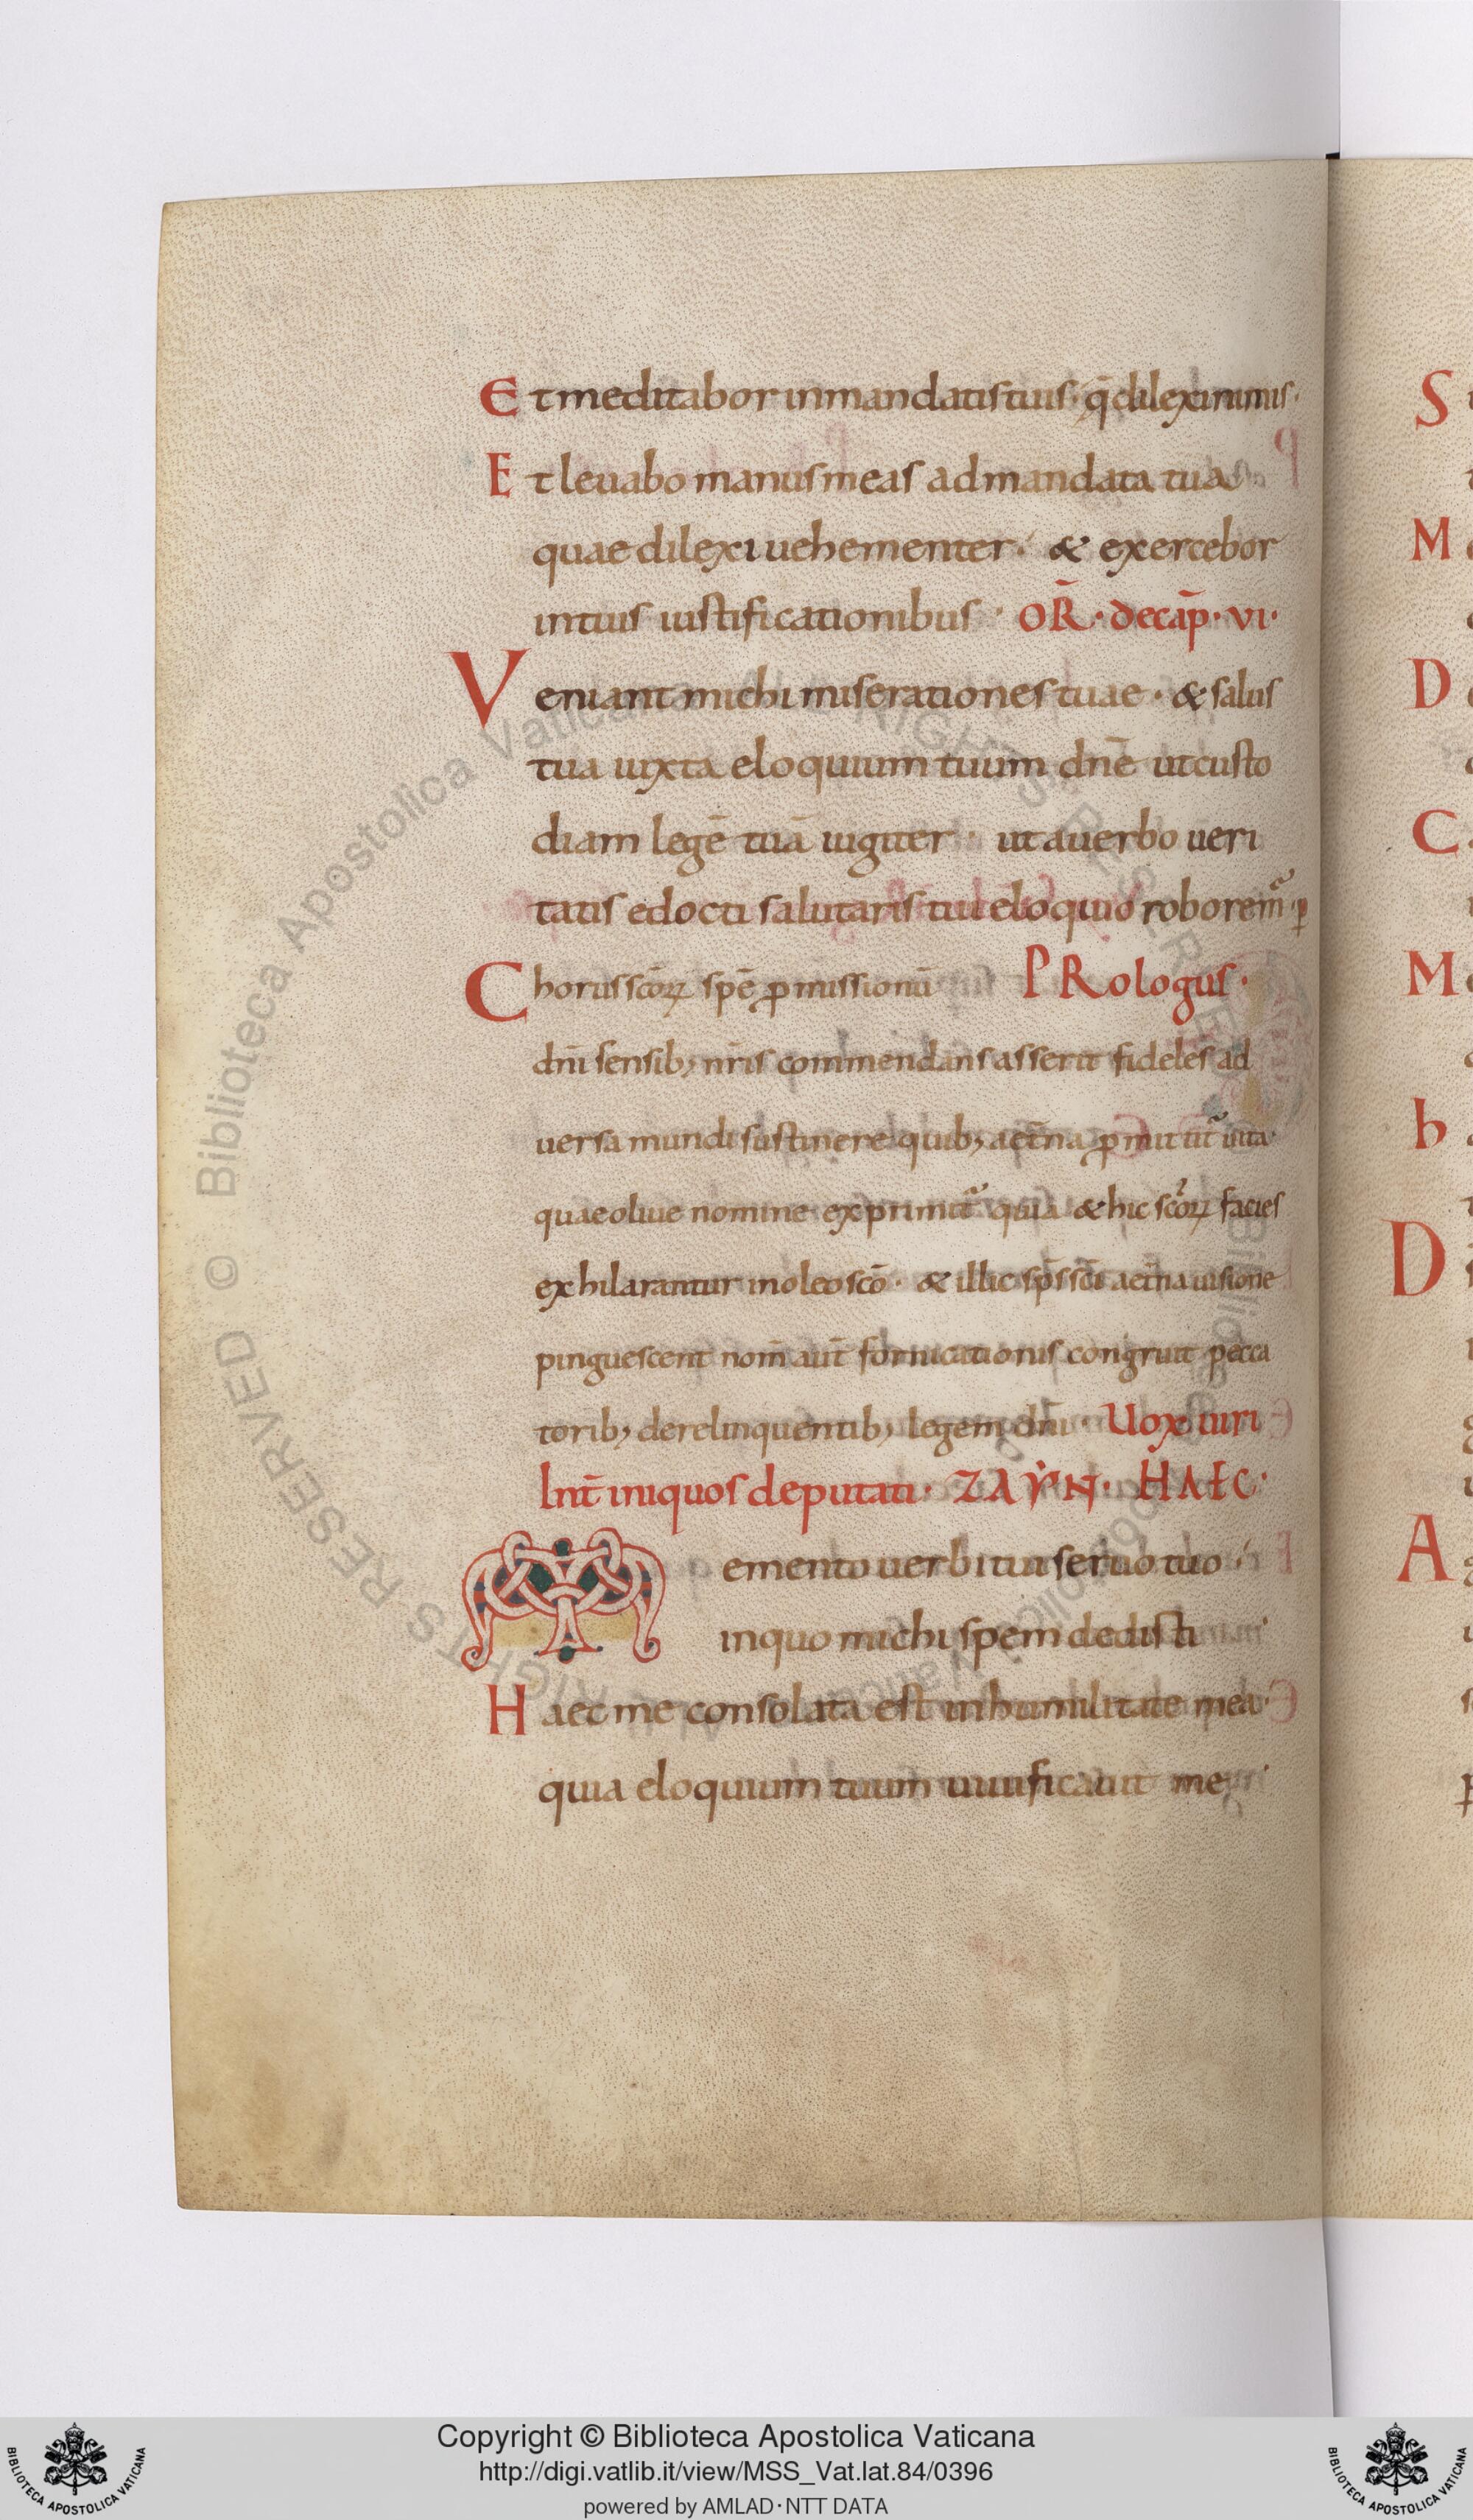 Et meditabor in mandatis tuis· q̄ dilexi nimis·
Et leuabo manus meas ad mandata tua
quae dilexi uehementer· & exercebor
in tuis iustificationibus· OR̄· de cap̄· vi·
Veniant michi miserationes tuae· & salus
tua iuxta eloquium tuum dn̄e ut custo
diam legē tuā iugiter· ut a uerbo ueri
tatis edocti salutaris tui eloquio roborem̄· p
Chorus sc̄oꝝ spē ꝓmissionū PRologus·
dn̄i sensib; nr̄is commendans asserit fideles ad
uersa mundi sustinere quib; aet̄na ꝓmittit̄ uita
quae oliue nomine exprimit̄ quia & hic sc̄oꝝ facies
exhilarantur in oleo sc̄o· & illic sp̄s sc̄i aet̄na uisione
pinguescent nom̄ aut̄ fornicationis congruit pecca
torib; derelinquentib; legem dn̄i· Uox iuri
ln̄t iniquos deputati· ZAẎN· HAEC·
Memento uerbi tui seruo tuo
in quo michi spem dedisti
Haec me consolata est in humilitate mea·
quia eloquium tuum uiuificauit me
S
M
D
C
M
h
D
A
© Biblioteca Apostolica Vaticana ALL RIGHTS RESERVED
BIBLIOTECA APOSTOLICA VATICANA
Copyright © Biblioteca Apostolica Vaticana
http://digi.vatlib.it/view/MSS_Vat.lat.84/0396
powered by AMLAD·NTT DATA
BIBLIOTECA APOSTOLICA VATICANA